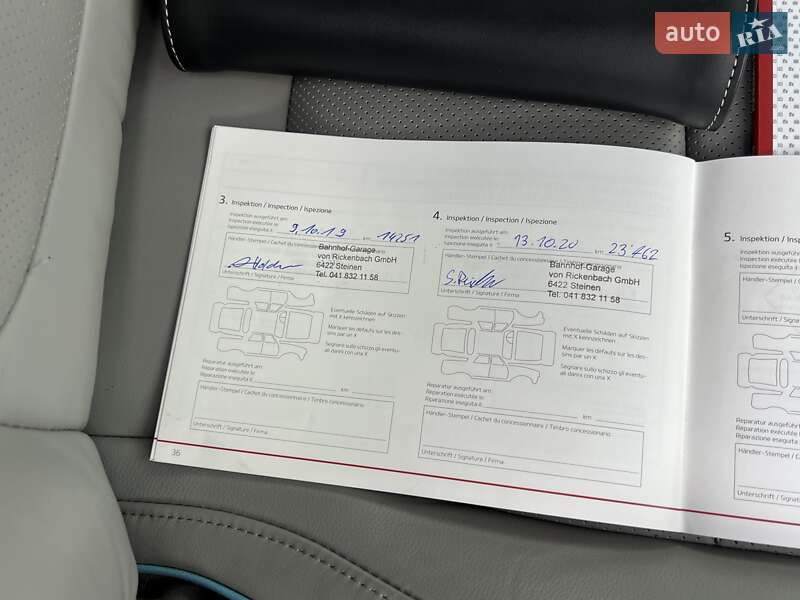 auto RIA
3. Inspektion / Inspection / Ispezione
Inspektion ausgeführt am:
Inspection exécutée le:
Ispezione eseguita il: 9.10.19 km 14251
Händler-Stempel / Cachet du concessionnaire
Bahnhof-Garage
von Rickenbach GmbH
6422 Steinen
Tel. 041 832 11 58
Unterschrift / Signature / Firma
Eventuelle Schäden auf Skizzen
mit X kennzeichnen
Marquer les défauts sur les des-
sins par un X
Segnare sullo schizzo gli eventu-
ali danni con una X
Reparatur ausgeführt am:
Réparation exécutée le:
Riparazione eseguita il: km
Händler-Stempel / Cachet du concessionnaire / Timbro concessionario
Unterschrift / Signature / Firma
36
4. Inspektion / Inspection / Ispezione
Inspektion ausgeführt am:
Inspection exécutée le:
Ispezione eseguita il: 13.10.20 km 23'462
Händler-Stempel / Cachet du concessionnaire
Bahnhof-Garage
von Rickenbach GmbH
6422 Steinen
Tel. 041 832 11 58
Unterschrift / Signature / Firma
Eventuelle Schäden auf Skizzen
mit X kennzeichnen
Marquer les défauts sur les des-
sins par un X
Segnare sullo schizzo gli eventu-
ali danni con una X
Reparatur ausgeführt am:
Réparation exécutée le:
Riparazione eseguita il: km
Händler-Stempel / Cachet du concessionnaire / Timbro concessionario
Unterschrift / Signature / Firma
5. Inspektion / Ins
Inspektion ausgeführt
Inspection exécutée le:
Ispezione eseguita il:
Händler-Stempel / C
Unterschrift / Signat
Reparatur ausgeführt
Réparation exécutée
Riparazione eseguita
Händler-Stempel / Ca
Unterschrift / Signat